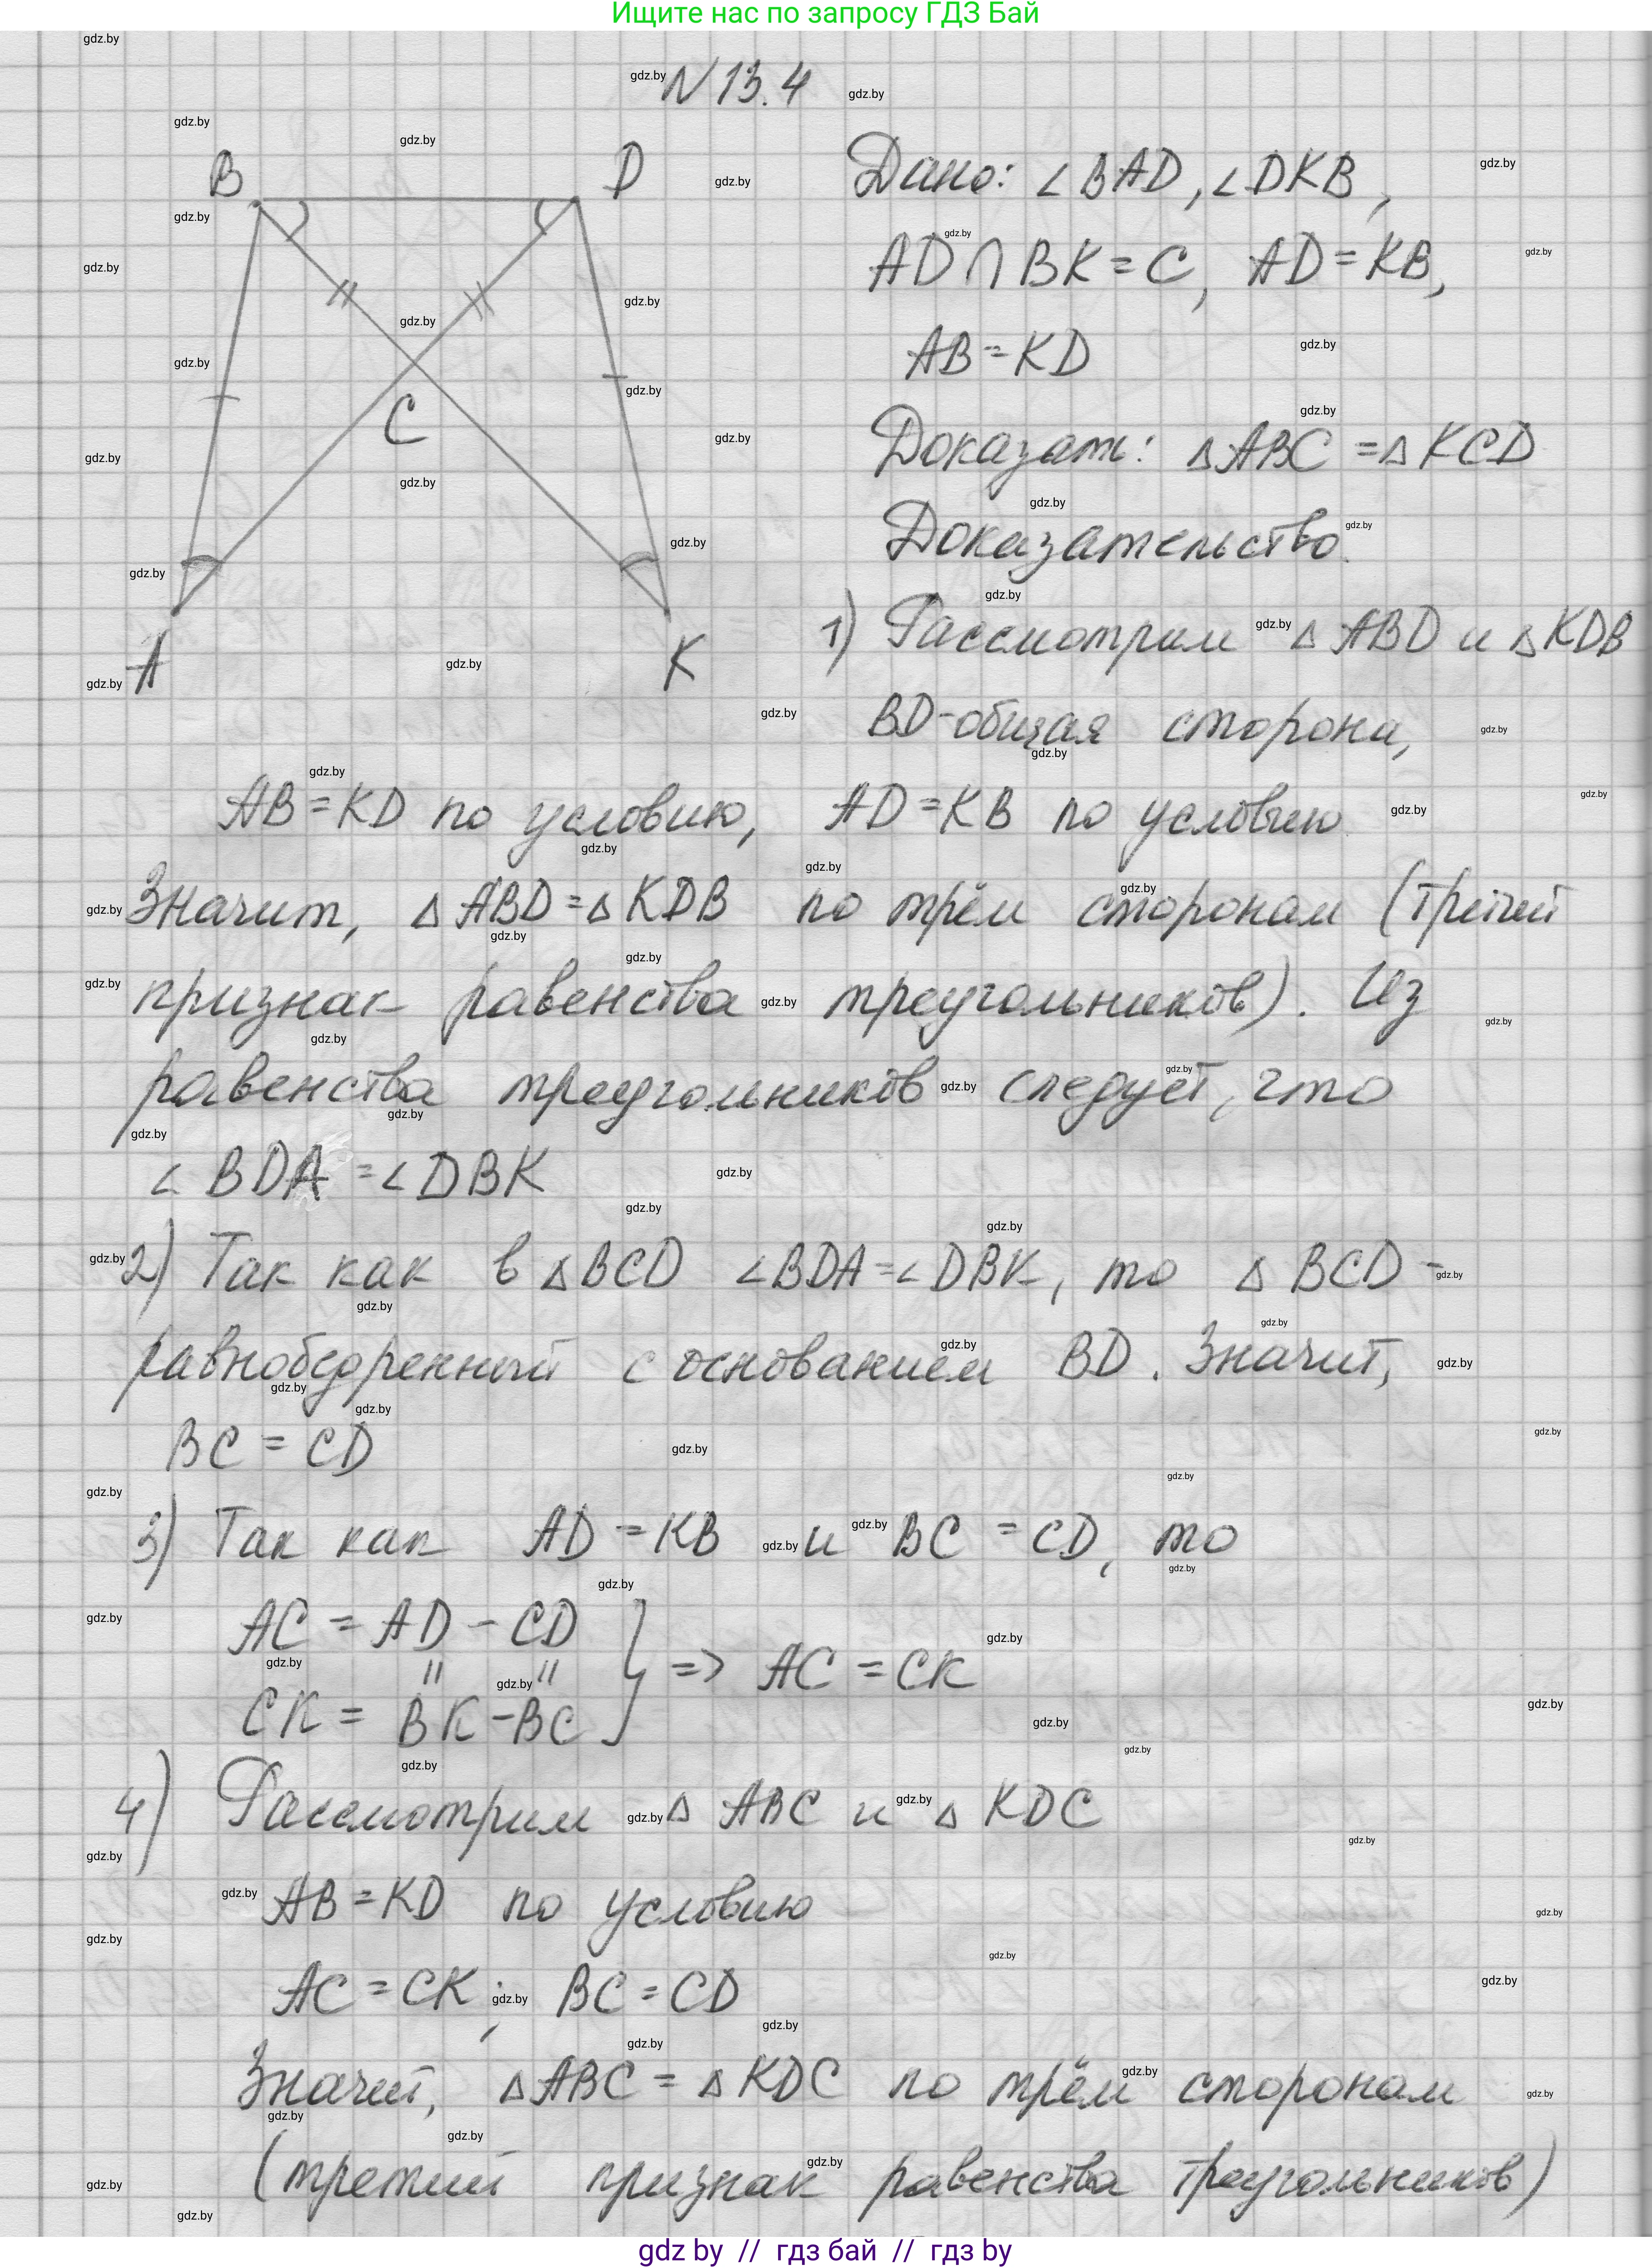 Ищите нас по запросу ГДЗ Бай
N 13.4
B
D
C
A
K
Дано: ∠BAD, ∠DKB,
AD ∩ BK = C, AD = KB,
AB = KD
Доказать: ΔABC = ΔKCD
Доказательство.
1) Рассмотрим Δ ABD и Δ KDB
BD - общая сторона,
AB = KD по условию, AD = KB по условию
Значит, Δ ABD = Δ KDB по трём сторонам (третий
признак равенства треугольников). Из
равенства треугольников следует, что
∠ BDA = ∠ DBK
2) Так как в Δ BCD ∠BDA = ∠ DBK, то Δ BCD -
равнобедренный с основанием BD. Значит,
BC = CD
3) Так как AD = KB и BC = CD, то
AC = AD - CD
} => AC = CK
CK = BK - BC
4) Рассмотрим Δ ABC и Δ KDC
AB = KD по условию
AC = CK; BC = CD
Значит, Δ ABC = Δ KDC по трём сторонам
(третий признак равенства треугольников)
gdz by // гдз бай // гдз by